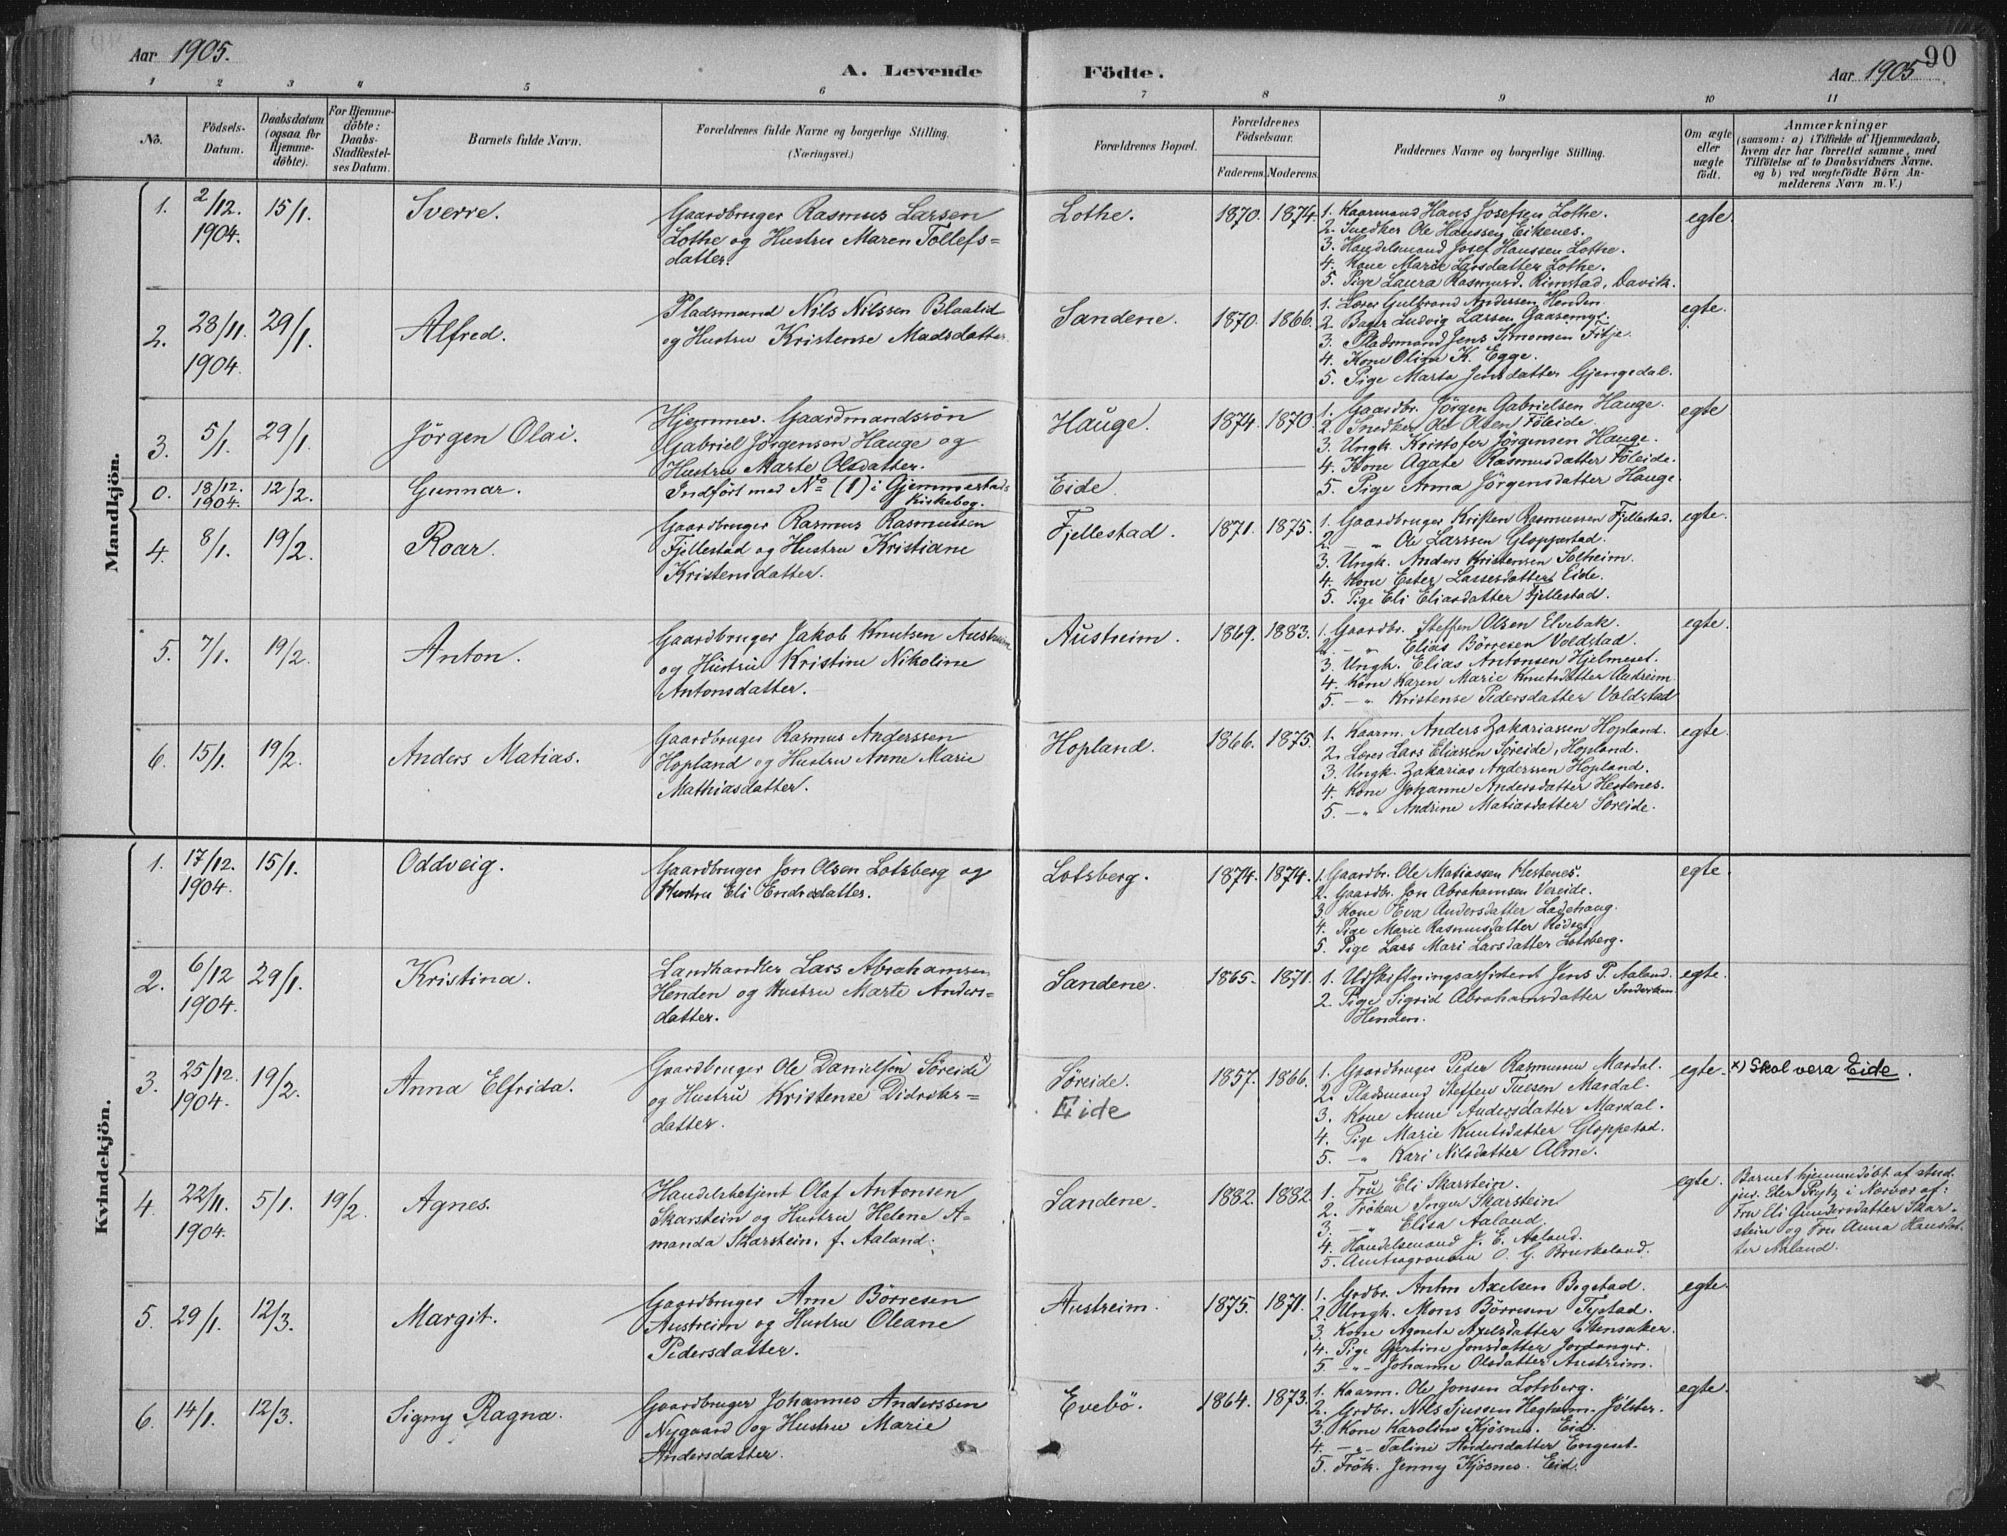 Aar 1905.
A. Levende Födte.
Aar 1905.
90
1 2 3 4 5 6 7 8 9 10 11
No.
Födsels-Datum.
Daabsdatum (ogsaa for Hjemme-döbte).
For Hjemme-döbte: Daabs-Stadfæstel-ses Datum.
Barnets fulde Navn.
Forældrenes fulde Navne og borgerlige Stilling. (Næringsvei.)
Forældrenes Bopæl.
Forældrenes Födselsaar.
Faderens. Moderens.
Faddernes Navne og borgerlige Stilling.
Om ægte eller uægte födt.
Anmærkninger (saasom: a) i Tilfælde af Hjemmedaab, hvem der har forrettet samme, med Tilföielse af to Daabsvidners Navne. og b) ved uægtefödte Börn An-melderens Navn m. V.)
Mandkjön.
1. 2/12. 1904. 15/1. Sverre.
Gaardbruger Rasmus Larsen
Lothe og Hustru Maren Tollefs=
datter.
Lothe. 1870. 1874.
1. Kaarmand Hans Josefsen Lothe.
2. Snedker Ole Hanssen Eikenes.
3. Handelsmand Josef Hanssen Lothe.
4. Kone Marie Larsdatter Lothe.
5. Pige Laura Rasmusd. Rimstad, Davik.
egte
2. 23/11. 1904. 29/1. Alfred.
Pladsmand Nils Nilssen Blaalid
og Hustru Kristense Madsdatter.
Sandene. 1870. 1866.
1. Lærer Gulbrand Andersen Henden
2. Bager Ludvig Larsen Gaasemyr.
3. Pladsmand Jens Simonsen Fitje.
4. Kone Olina K. Egge.
5. Pige Marta Jensdatter Gjengedal.
egte.
3. 5/1. 29/1. Jörgen Olai.
Hjemmev. Gaardmandssön
Gabriel Jörgenson Hauge og
Hustru Marte Olsdatter.
Hauge. 1874. 1870.
1. Gaardbr. Jörgen Gabrielsen Hauge.
2. Snedker Ole Olsen Föleide.
3. Ungk. Kristofer Jörgensen Hauge.
4. Kone Agate Rasmusdatter Föleide.
5. Pige Anna Jörgensdatter Hauge.
egte
0. 18/12. 1904. 12/2. Gunnar.
Indfört med No (1) i Gjemmestads
Kirkebog.
Eide.
4. 8/1. 19/2. Roar.
Gaardbruger Rasmus Rasmussen
Fjellestad og Hustru Kristiane
Kristensdatter.
Fjellestad. 1871. 1875.
1. Gaardbruger Kristen Rasmussen Fjellestad.
2. — " Ole Larssen Gloppestad.
3. Ungk. Anders Kristensen Solheim.
4. Kone Ester Lassesdatter Eide.
5. Pige Eli Eliasdatter Fjellestad.
egte.
5. 7/1. 19/2. Anton.
Gaardbruger Jakob Knutsen Austreim
og Hustru Kristine Nikoline
Antonsdatter.
Austreim. 1869. 1883.
1. Gaardbr. Steffen Olsen Elvebak.
2. — " Elias Börresen Voldstad.
3. Ungk. Elias Antonsen Hjelmeset.
4. Kone Karen Marie Knutsdatter Austreim
5. — " Kristense Pedersdatter Voldstad
egte.
6. 15/1. 19/2. Anders Matias.
Gaardbruger Rasmus Anderssen
Hopland og Hustru Anne Marie
Mathiasdatter.
Hopland. 1866. 1875.
1. Kaarm. Anders Zakariassen Hopland.
2. Lærer Lars Eliassen Söreide, Hopland.
3. Ungk. Zakarias Anderssen Hopland.
4. Kone Johanne Andersdatter Hestenes.
5. — " - Andrine Matiasdatter Söreide.
egte.
Kvindekjön.
1. 17/12. 1904. 15/1. Oddveig.
Gaardbruger Jon Olsen Lotsberg og
Hustru Eli Endresdatter.
Lotsberg. 1874. 1874.
1. Gaardbr. Ole Matiassen Hestenes.
2. Gaardbr. Jon Abrahamsen Vereide.
3. Kone Eva Andersdatter Ladehaug.
4. Pige Marie Rasmusdatter Rödset.
5. Pige Lars Mari Larsdatter Lotsberg.
egte.
2. 6/12 1904. 29/1. Kristina.
Landhandler Lars Abrahamsen
Henden og Hustru Marte Anders=
datter.
Sandene. 1865. 1871.
1. Udskiftningsassistent Jens P. Aaland.
2. Pige Sigrid Abrahamsdatter
Henden.
egte.
3. 25/12. 1904. 19/2. Anna Elfrida.
Gaardbruger Ole Danielsön Söreide x)
og Hustru Kristense Didriks=
datter.
Söreide. 1857. 1866.
Eide
1. Gaardbruger Peder Rasmussen Mardal.
2. Pladsmand Steffen Tuesen Mardal.
3. Kone Anne Andersdatter Mardal.
4. Pige Marie Knutsdatter Gloppestad.
5. — " Kari Nilsdatter Alme.
egte.
x) Skal vera Eide.
4. 22/11. 1904. 5/1. 19/2. Agnes.
Handelsbetjent Olaf Antonsen
Skarstein og Hustru Helene A=
manda Skarstein, f. Aaland.
Sandene. 1882. 1882
1. Fru Eli Skarstein.
2. Fröken Inger Skarstein
3. — " Elisa Aaland.
4. Handelsmand J. E. Aaland.
5. Amtsagronom O. G. Bruskeland.
egte.
Barnet hjemmedöbt af stud.
jur. Eler Rytz i Nærvær af:
Fru Eli Gundersdatter Skar=
stein og Fru Anna Hansdat=
ter Aaland.
5. 29/1. 12/3. Margit.
Gaardbruger Arne Börresen
Austreim og Hustru Oleane
Pedersdatter.
Austreim. 1875. 1871.
1. Grdbr. Anton Axelsen Rygstad.
2. Ungk. Mons Börresen Tystad.
3. Kone Agnete Axelsdatter Stensaker.
4. Pige Gjertine Jonsdatter Jordanger.
5. — " - Johanne Olsdatter Austreim.
egte.
6. 14/1. 12/3. Signy Ragna.
Gaardbruger Johannes Anderssen
Nygaard og Hustru Marie
Andersdatter.
Evebö. 1864. 1873.
1. Kaarm. Ole Jonsen Lotsberg.
2. Grdbr. Nils Sjurssen Hegheim. Jölster.
3. Kone Karoline Kjösnes. Eid.
4. — " - Taline Andersdatter Engeset.
5. Frök. Jenny Kjösnes. Eid.
egte.